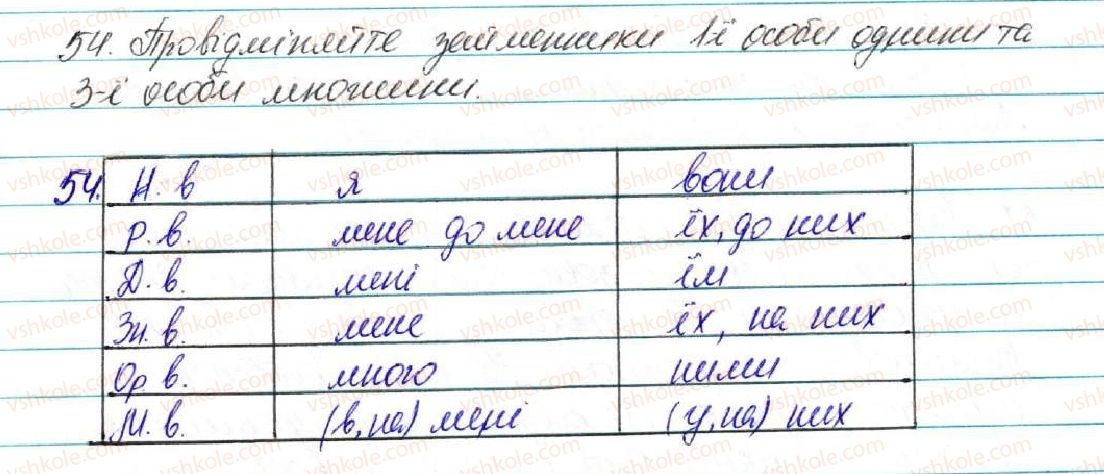 54. Провідміняйте займенники 1-ї особи однини та
3-ї особи множини.
54. Н. в я вони
Р. в. мене до мене їх, до них
Д. в. мені їм
Зн. в. мене їх, на них
Ор. в. мною ними
М. в. (в, на) мені (у, на) них